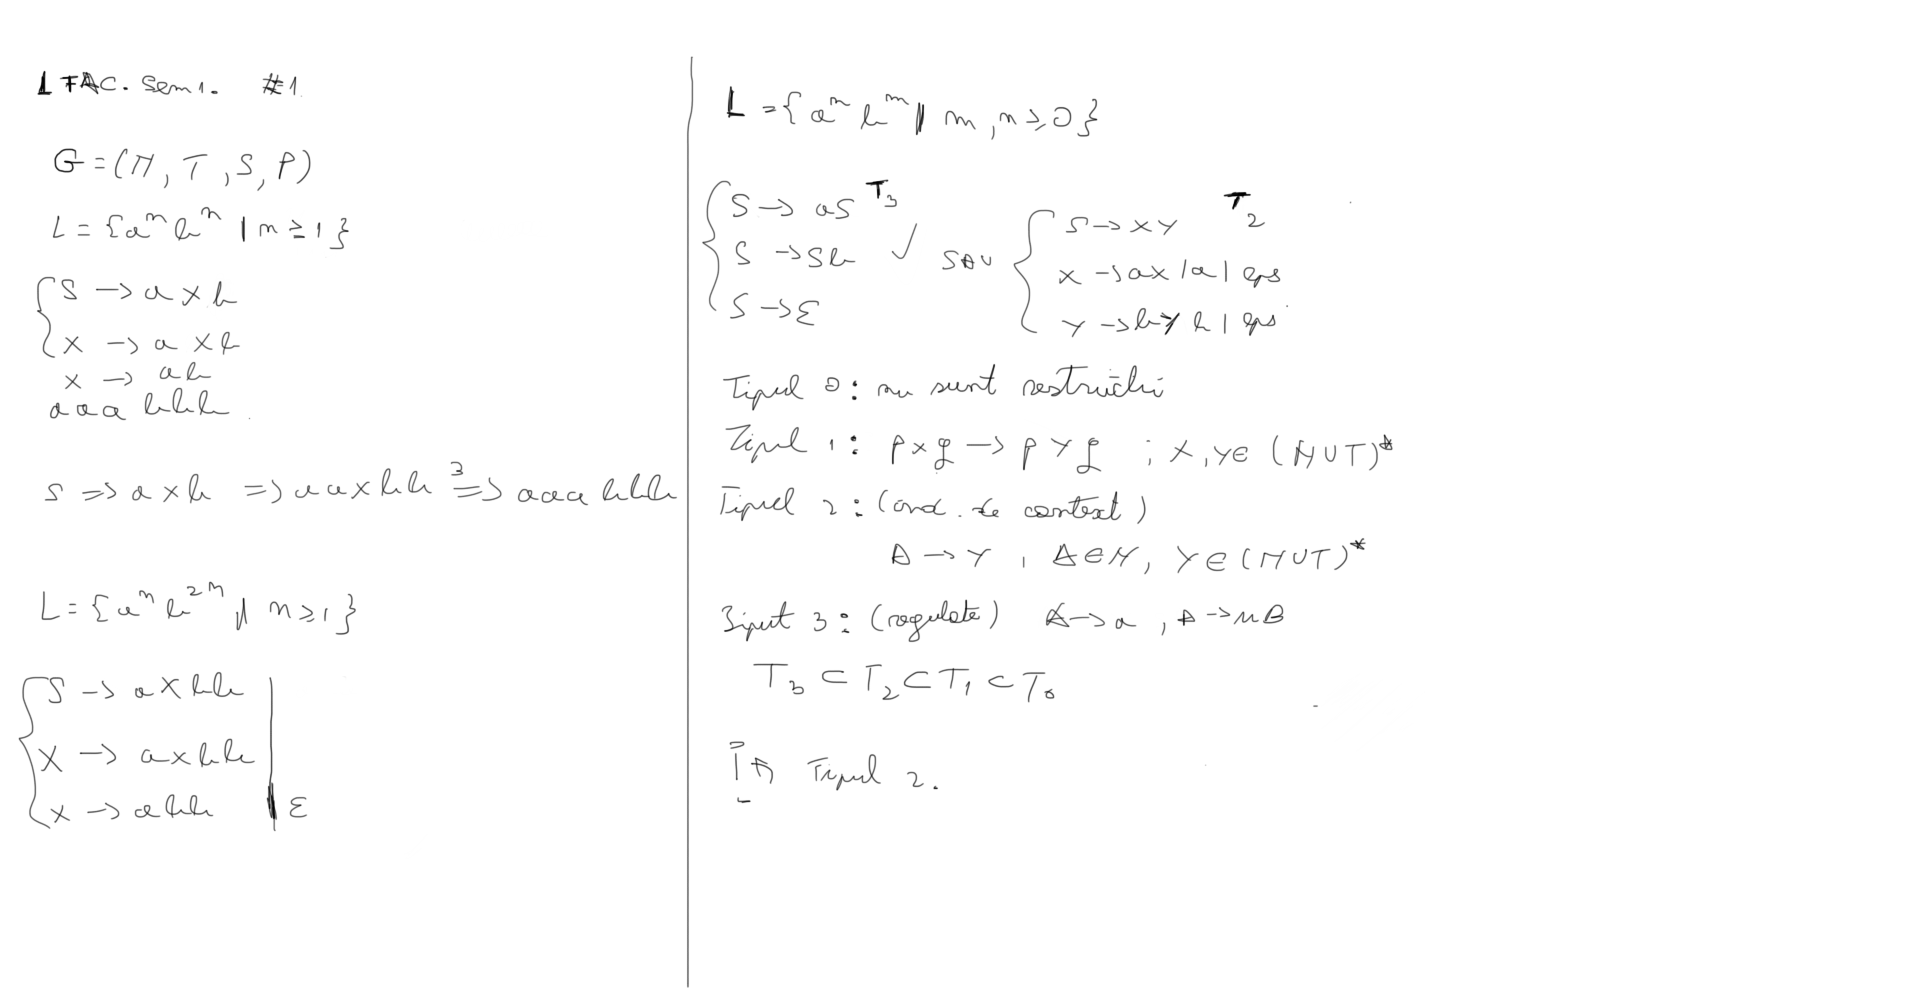 LFAC. Sem 1. #1
G = (N, T, S, P)
L = {aⁿ bⁿ | n ≥ 1}
S → a X b
X → a X b
X → ab
aaa bbb
S ⇒ a X b ⇒ a a X b b ⇒³ aaa bbb
L = {aⁿ b²ⁿ | n ≥ 1}
S → a X bb
X → a X bb
X → a bb | ε
L = {aⁿ bᵐ | m, n ≥ 0}
S → aS T₃
S → Sb ✓
S → ε
SAU
S → XY T₂
X → aX | a | eps
Y → bY b | eps
Tipul 0: nu sunt restricții
Tipul 1: p x q → p Y q ; X, Y ∈ (N ∪ T)*
Tipul 2: (ind. de context)
A → Y , A ∈ N, Y ∈ (N ∪ T)*
Tipul 3: (regulate) A → a , A → uB
T₃ ⊂ T₂ ⊂ T₁ ⊂ T₀
Tipul 2.